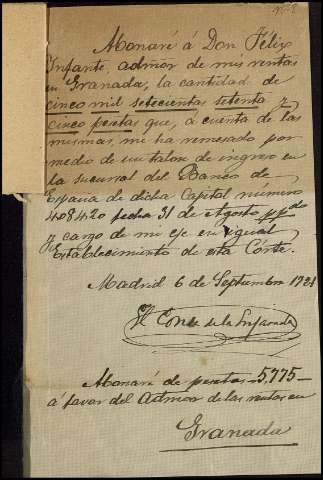 Abonaré á Don Félix
Infante, admor de mis rentas
en Granada, la cantidad de
cinco mil setecientas setenta y
cinco pesetas que, á cuenta de las
mismas, me ha remesado por
medio de un talon de ingreso en
la sucursal del Banco de
España de dicha Capital número
408420 fecha 31 de Agosto ppdo
y cargo de mi cje en igual
Establecimiento de esta Córte.
Madrid 6 de Septiembre 1921
El Conde de la
Abonaré de pesetas - 5,775 -
á favor del Admor de las rentas en
Granada